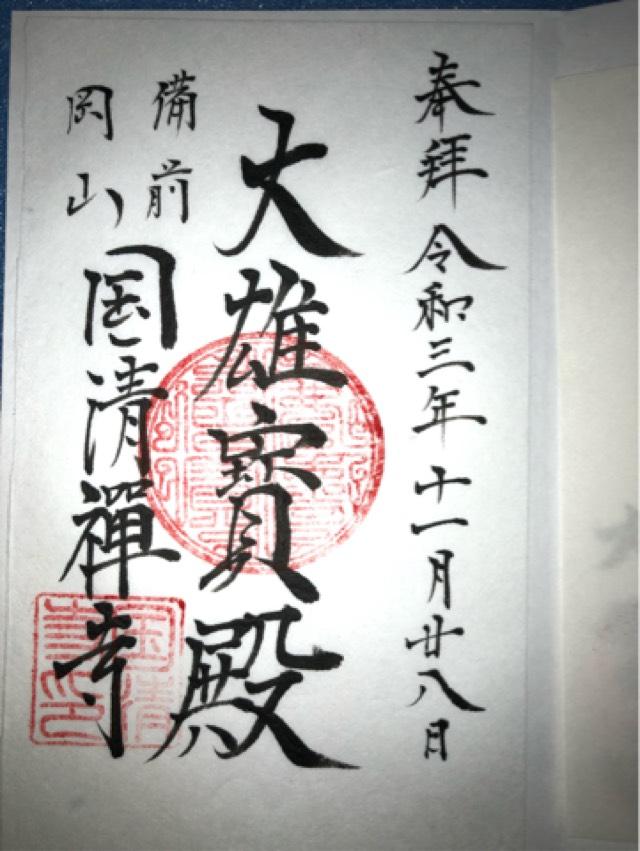 奉拜 令和三年十一月廿八日
大雄寶殿
備前
岡山
国清禪寺